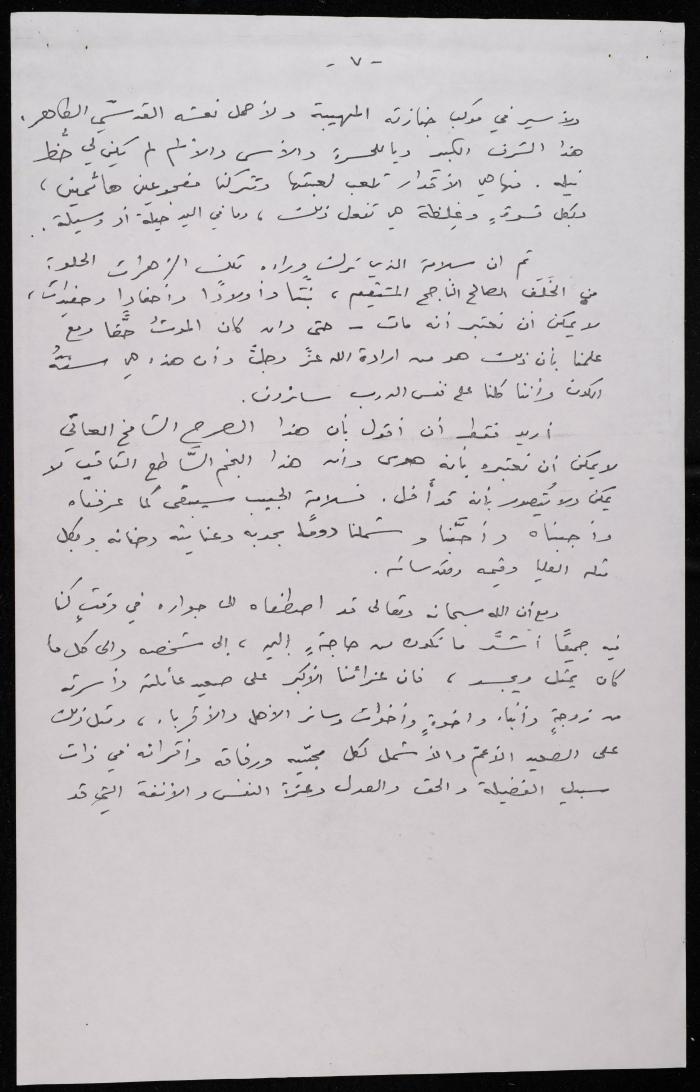 - ٧ -
ولأسير في موكب جنازته المهيبة ولأحمل نعشه القدسّي الطاهر.
هذا الشرف الكبير ويا للحسرة والأسى والألم لم يكن لي حُظ
نيله . فها هي الأقدار تلعب لعبتها وتتركنا مفجوعين هائمين ،
وبكل قسوةٍ وغِلظة هي تفعل ذلك ، وما في اليد حيلة أو وسيلة ..
ثم ان سلامة الذي ترك وراءه تلك الزهرات الحلوة
من الخَلَف الصالح الناجح المستقيم ، بنتًا وأولادًا وأحفادًا وحفيدات ،
لا يمكن أن نعتبر أنه مات - حتى وان كان الموتُ حقًّا ومع
علمنا بأن ذلك هو من ارادة الله عزَّ وجلَّ وأن هذه هي سنةُ
الكون وأننا كلنا على نفس الدرب سائرون .
أريد فقط أن أقول بأن هذا الصرح الشامخ العاتي
لا يمكن أن نعتبره بأنه هوى وأن هذا النجم السَّاطع الثاقب لا
يمكن ولا يُتصور بأنه قد أَفل . فسلامة الحبيب سيبقى كما عرفناه
وأحببناه وأحبَّنا وشملنا دومًا بحدبه وعنايته وحنانه وبكل
مثله العليا وقيمه ومقدساته .
ومع أن الله سبحانه وتعالى قد اصطفاه الى جواره في وقتٍ كنا
فيه جميعًا أشدَّ ما نكون من حاجةٍ إليه ، إلى شخصه والى كل ما
كان يمثل ويجسد ، فان عزائنا الأكبر على صعيد عائلته وأسرته
من زوجةٍ وأبناء واخوةٍ وأخوات وسائر الأهل والأقرباء ، ومثل ذلك
على الصعيد الأعم والأشمل لكل محبّيه ورفاقه وأقرانه في ذات
سبيل الفضيلة والحق والعدل وعزة النفس والأنفة التي قد